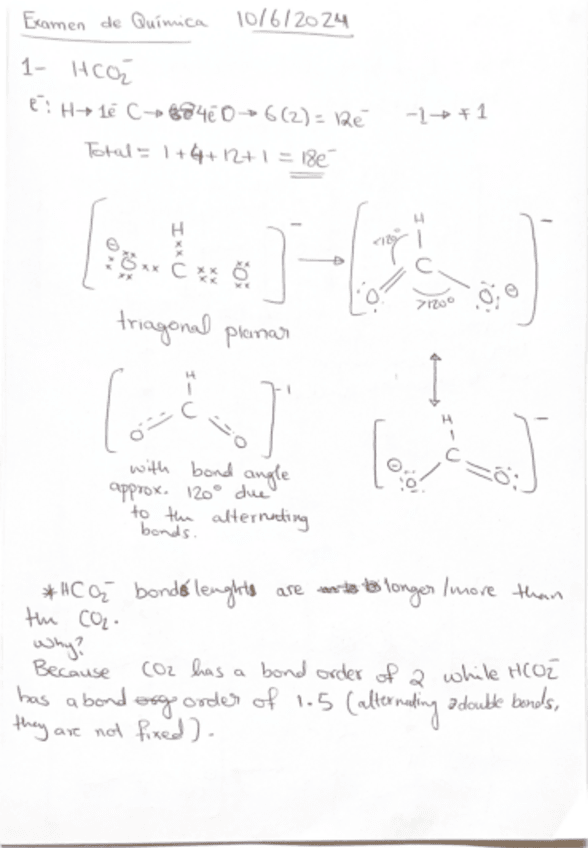 Examen de Química 10/6/2024
1- HCO₂⁻
e⁻: H→ 1e⁻ C→ 4e⁻ O→ 6(2) = 12e⁻ -1→ +1
Total = 1+4+12+1 = 18e⁻
H
⊖
O C O
−
H
<120°
C
O O ⊖
>120°
−
triagonal planar
H
C
O O
-1
H
C
⊖ O O
−
with bond angle
approx. 120° due
to the alternating
bonds.
*HCO₂⁻ bond lenghts are longer/more than
the CO₂.
Why?
Because CO2 has a bond order of 2 while HCO2⁻
has a bond order of 1.5 (alternating double bonds,
they are not fixed).